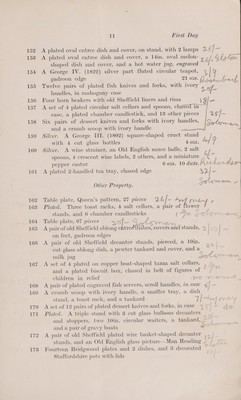 11 First Day
152 A plated oval entree dish and cover, on stand, with 2 lamps 25/-
153 A plated oval entree dish and cover, a 14in. oval melon-
shaped dish and cover, and a hot water jug, engraved
154 A George IV. (1822) silver part fluted circular teapot,
gadroon edge 21 ozs.
155 Twelve pairs of plated fish knives and forks, with ivory
handles, in mahogany case
156 Four horn beakers with old Sheffield liners and rims 18/-
157 A set of 4 plated circular salt cellars and spoons, chased in
case, a plated chamber candlestick, and 13 other pieces
158 Six pairs of dessert knives and forks with ivory handles,
and a crumb scoop with ivory handle
159 Silver. A George III. (1802) square-shaped cruet stand
with 4 cut glass bottles 4 ozs.
160 Silver. A wine strainer, an Old English sauce ladle, 2 salt
spoons, 4 crescent wine labels, 2 others, and a miniature
pepper castor 6 ozs. 10 dwts.
161 A plated 2-handled tea tray, chased edge 32/-
Solomon
Other Property.
162 Table plate, Queen's pattern, 27 pieces 26/-
163 Plated. Three toast racks, 4 salt cellars, a pair of flower
stands, and 6 chamber candlesticks
164 Table plate, 67 pieces
165 A pair of old Sheffield oblong entree dishes, covers and stands,
on feet, gadroon edges
166 A pair of old Sheffield decanter stands, pierced, a 10in.
cut glass oblong dish, a pewter tankard and cover, and a
milk jug
167 A set of 4 plated on copper boat-shaped tazza salt cellars,
and a plated biscuit box, chased in belt of figures of
children in relief
168 A pair of plated engraved fish servers, scroll handles, in case
169 A crumb scoop with ivory handle, a snuffer tray, a dish
stand, a toast rack, and a tankard
170 A set of 12 pairs of plated dessert knives and forks, in case
171 Plated. A triple stand with 3 cut glass bulbous decanters
and stoppers, two 10in. circular waiters, a tankard,
and a pair of gravy boats
172 A pair of old Sheffield plated wire basket-shaped decanter
stands, and an Old English glass picture—Man Reading
173 Fourteen Bridgwood plates and 2 dishes, and 3 decorated
Staffordshire pots with lids